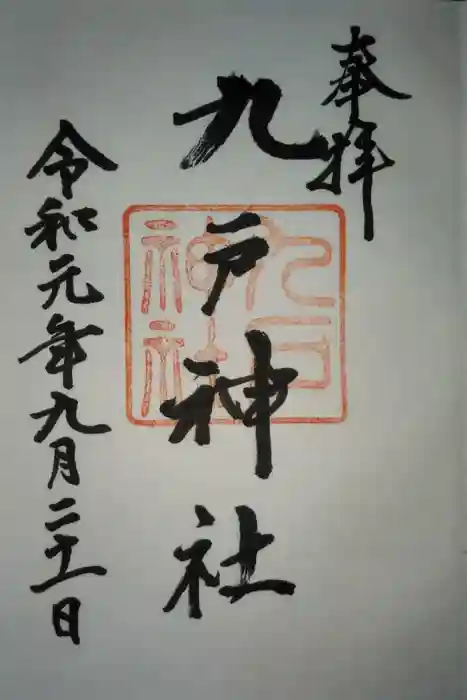 奉拝
九戸神社
令和元年九月二十一日
九戸
神社